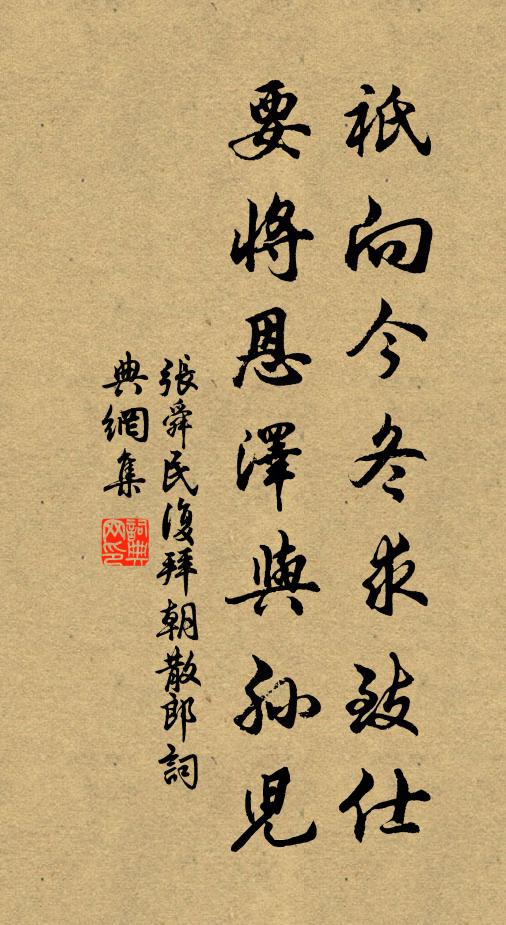 祇向今冬求致仕
要將恩澤與孫兒
張舜民復拜朝散郎詞
典網集
詞典網印